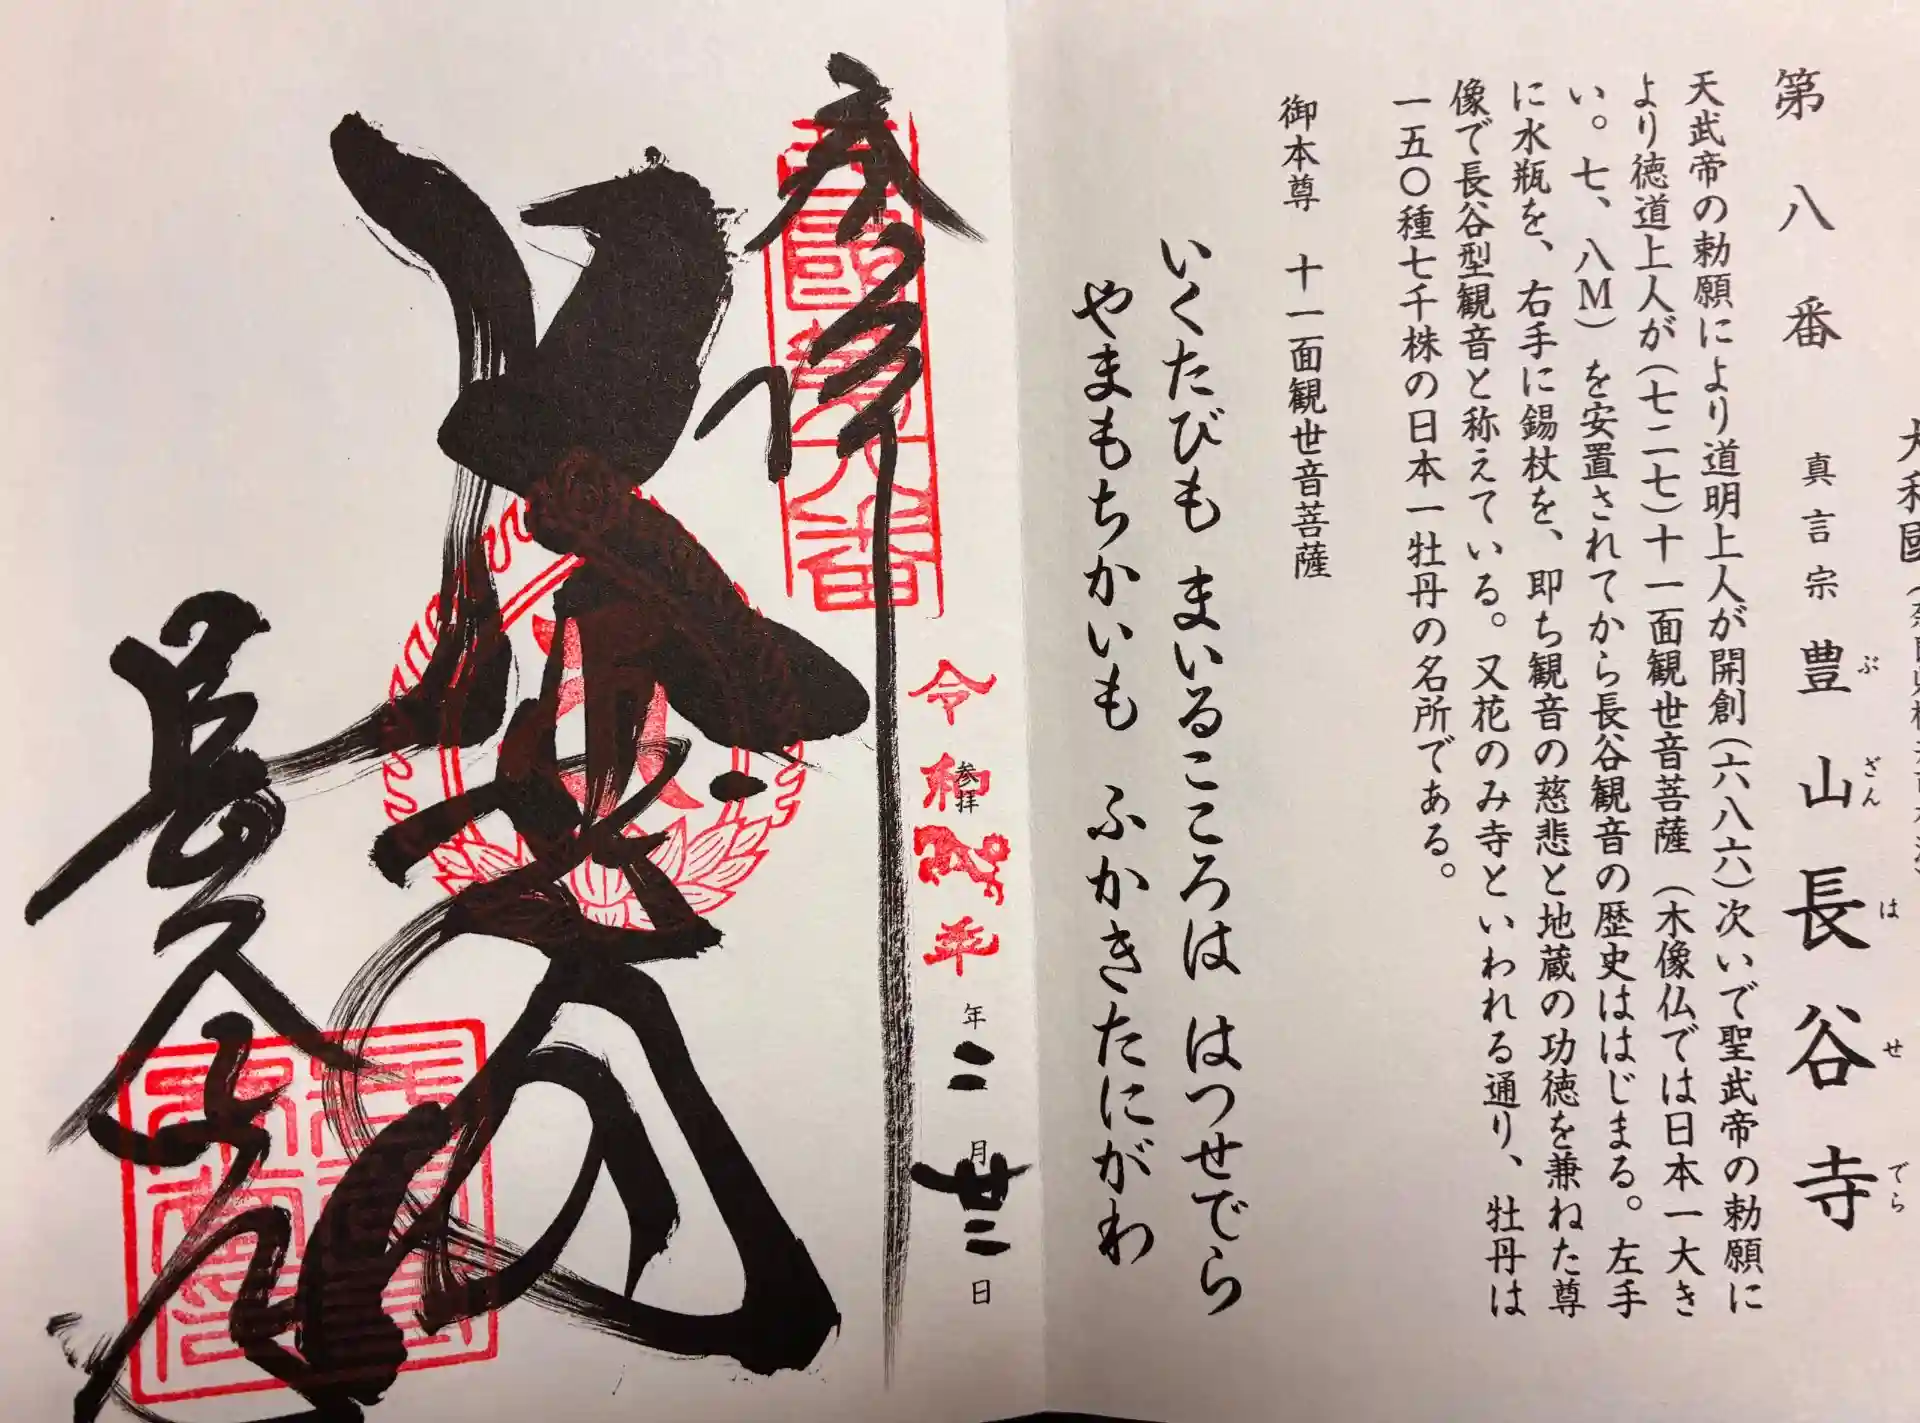 大和國
第八番 真言宗 豊山長谷寺
ぶざん はせでら
天武帝の勅願により道明上人が開創(六八六)次いで聖武帝の勅願に
より徳道上人が(七二七)十一面観世音菩薩(木像仏では日本一大き
い。七、八M)を安置されてから長谷観音の歴史ははじまる。左手
に水瓶を、右手に錫杖を、即ち観音の慈悲と地蔵の功徳を兼ねた尊
像で長谷型観音と称えている。又花のみ寺といわれる通り、牡丹は
一五〇種七千株の日本一牡丹の名所である。
御本尊 十一面観世音菩薩
いくたびも まいるこころは はつせでら
やまもちかいも ふかきたにがわ
令和年
参拝
年二月廿二日
奉拝
西國第八番
長谷寺